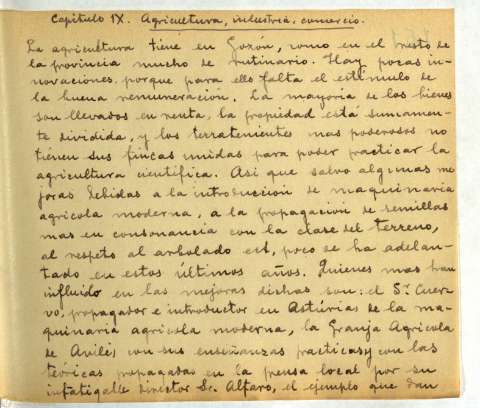 Capítulo IX. Agricultura, industria, comercio.
La agricultura tiene en Gozón, como en el resto de
la provincia mucho de rutinario. Hay pocas in-
novaciones, porque para ello falta el estímulo de
la buena remuneración. La mayoria de los bienes
son llevados en renta, la propiedad está sumamen-
te dividida, y los terratenientes mas poderosos no
tienen sus fincas unidas para poder practicar la
agricultura científica. Asi que salvo algunas me
joras debidas a la introducción de maquinaria
agricola moderna, a la propagación de semillas
mas en consonancia con la clase del terreno,
al respeto al arbolado ect, poco se ha adelan-
tado en estos últimos años. Quienes mas han
influido en las mejoras dichas son: el Sr. Cuer-
vo, propagador e introductor en Astúrias de la ma-
quinaria agricola moderna, la Granja Agricola
de Avilés con sus enseñanzas practicas y con las
teóricas propagadas en la prensa local por su
infatigable director Sr. Alfaro, el ejemplo que dan